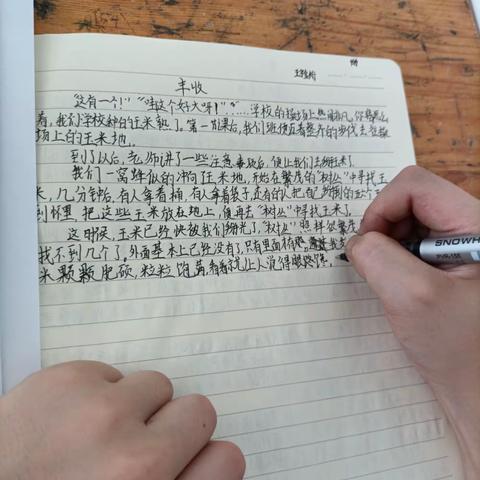 丰收
"这有一个!""哇这个好大呀!"……学校的操场上热闹非凡,你
看,我们学校种的玉米熟了。第一节课后,我们班便迈着整齐的步伐去往操
场上的玉米地。
到了以后,老师讲了一些注意事项后,便让我们去掰玉米了。
我们一窝蜂似的冲向玉米地,开始在繁茂的"树丛"中寻找玉
米,几分钟后,有人拿着桶,有人拿着袋子,还有的人把自己掰到的玉米
到怀里,把这些玉米放在地上,便再去"树丛"中寻找玉米了。
这时候,玉米已经快被我们掰光了,"树丛"照样繁茂
找不到几个了。外面基本上已经没有了,只有里面有
米颗颗肥硕,粒粒饱满,看着就让人觉得
SNOWH